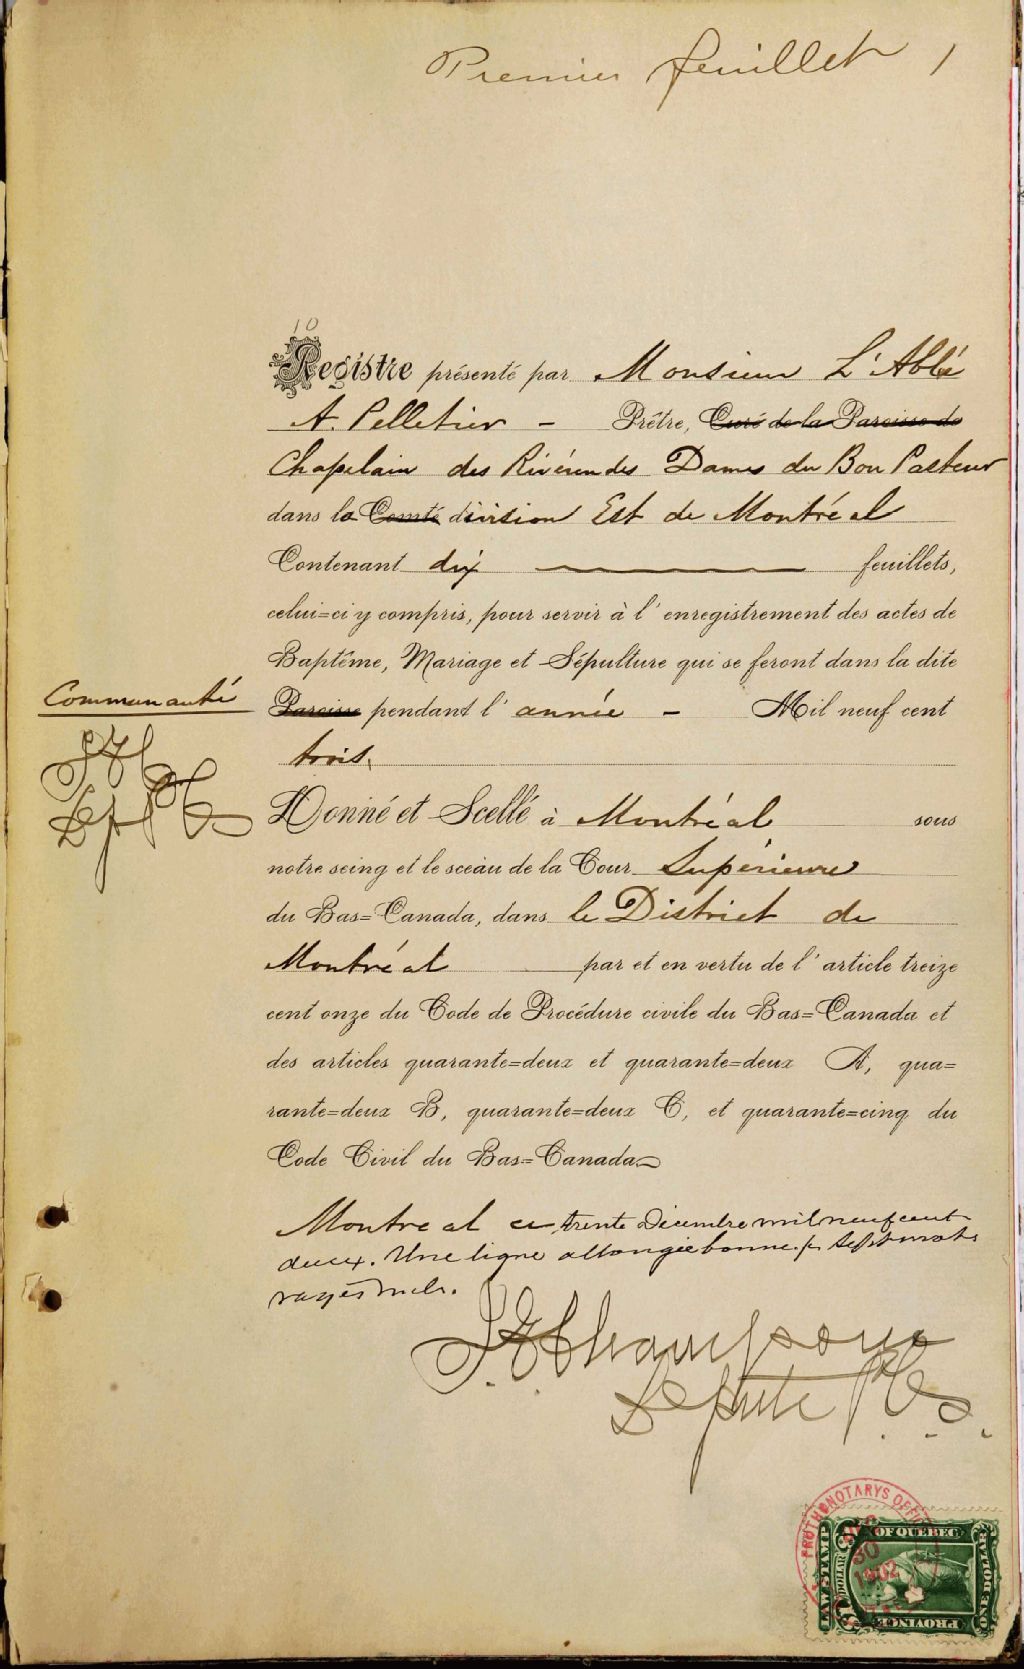 Premier feuillet 1
10
Registre présenté par Monsieur L'Abbé
A. Pelletier - Prêtre, Curé de la Paroisse de
Chapelain des Révérendes Dames du Bon Pasteur
dans la Comté division Est de Montréal
Contenant dix feuillets,
celui=ci y compris, pour servir à l'enregistrement des actes de
Baptême, Mariage et Sépulture qui se feront dans la dite
Communauté
Paroisse pendant l'année - Mil neuf cent
trois.
Donné et Scellé à Montréal sous
notre seing et le sceau de la Cour Supérieure
du Bas=Canada, dans le District de
Montréal par et en vertu de l'article treize
cent onze du Code de Procédure civile du Bas=Canada et
des articles quarante=deux et quarante=deux A, qua=
rante=deux B, quarante=deux C, et quarante=cinq du
Code Civil du Bas=Canada
Montreal ce trente Décembre mil neuf cent
deux. Une ligne allongée bonne. Sept mots
rayés nuls.
Député P.C.S.
PROTHONOTARYS OFFICE
DEC
30
1902
LAW STAMP
PROVINCE OF QUEBEC
ONE DOLLAR